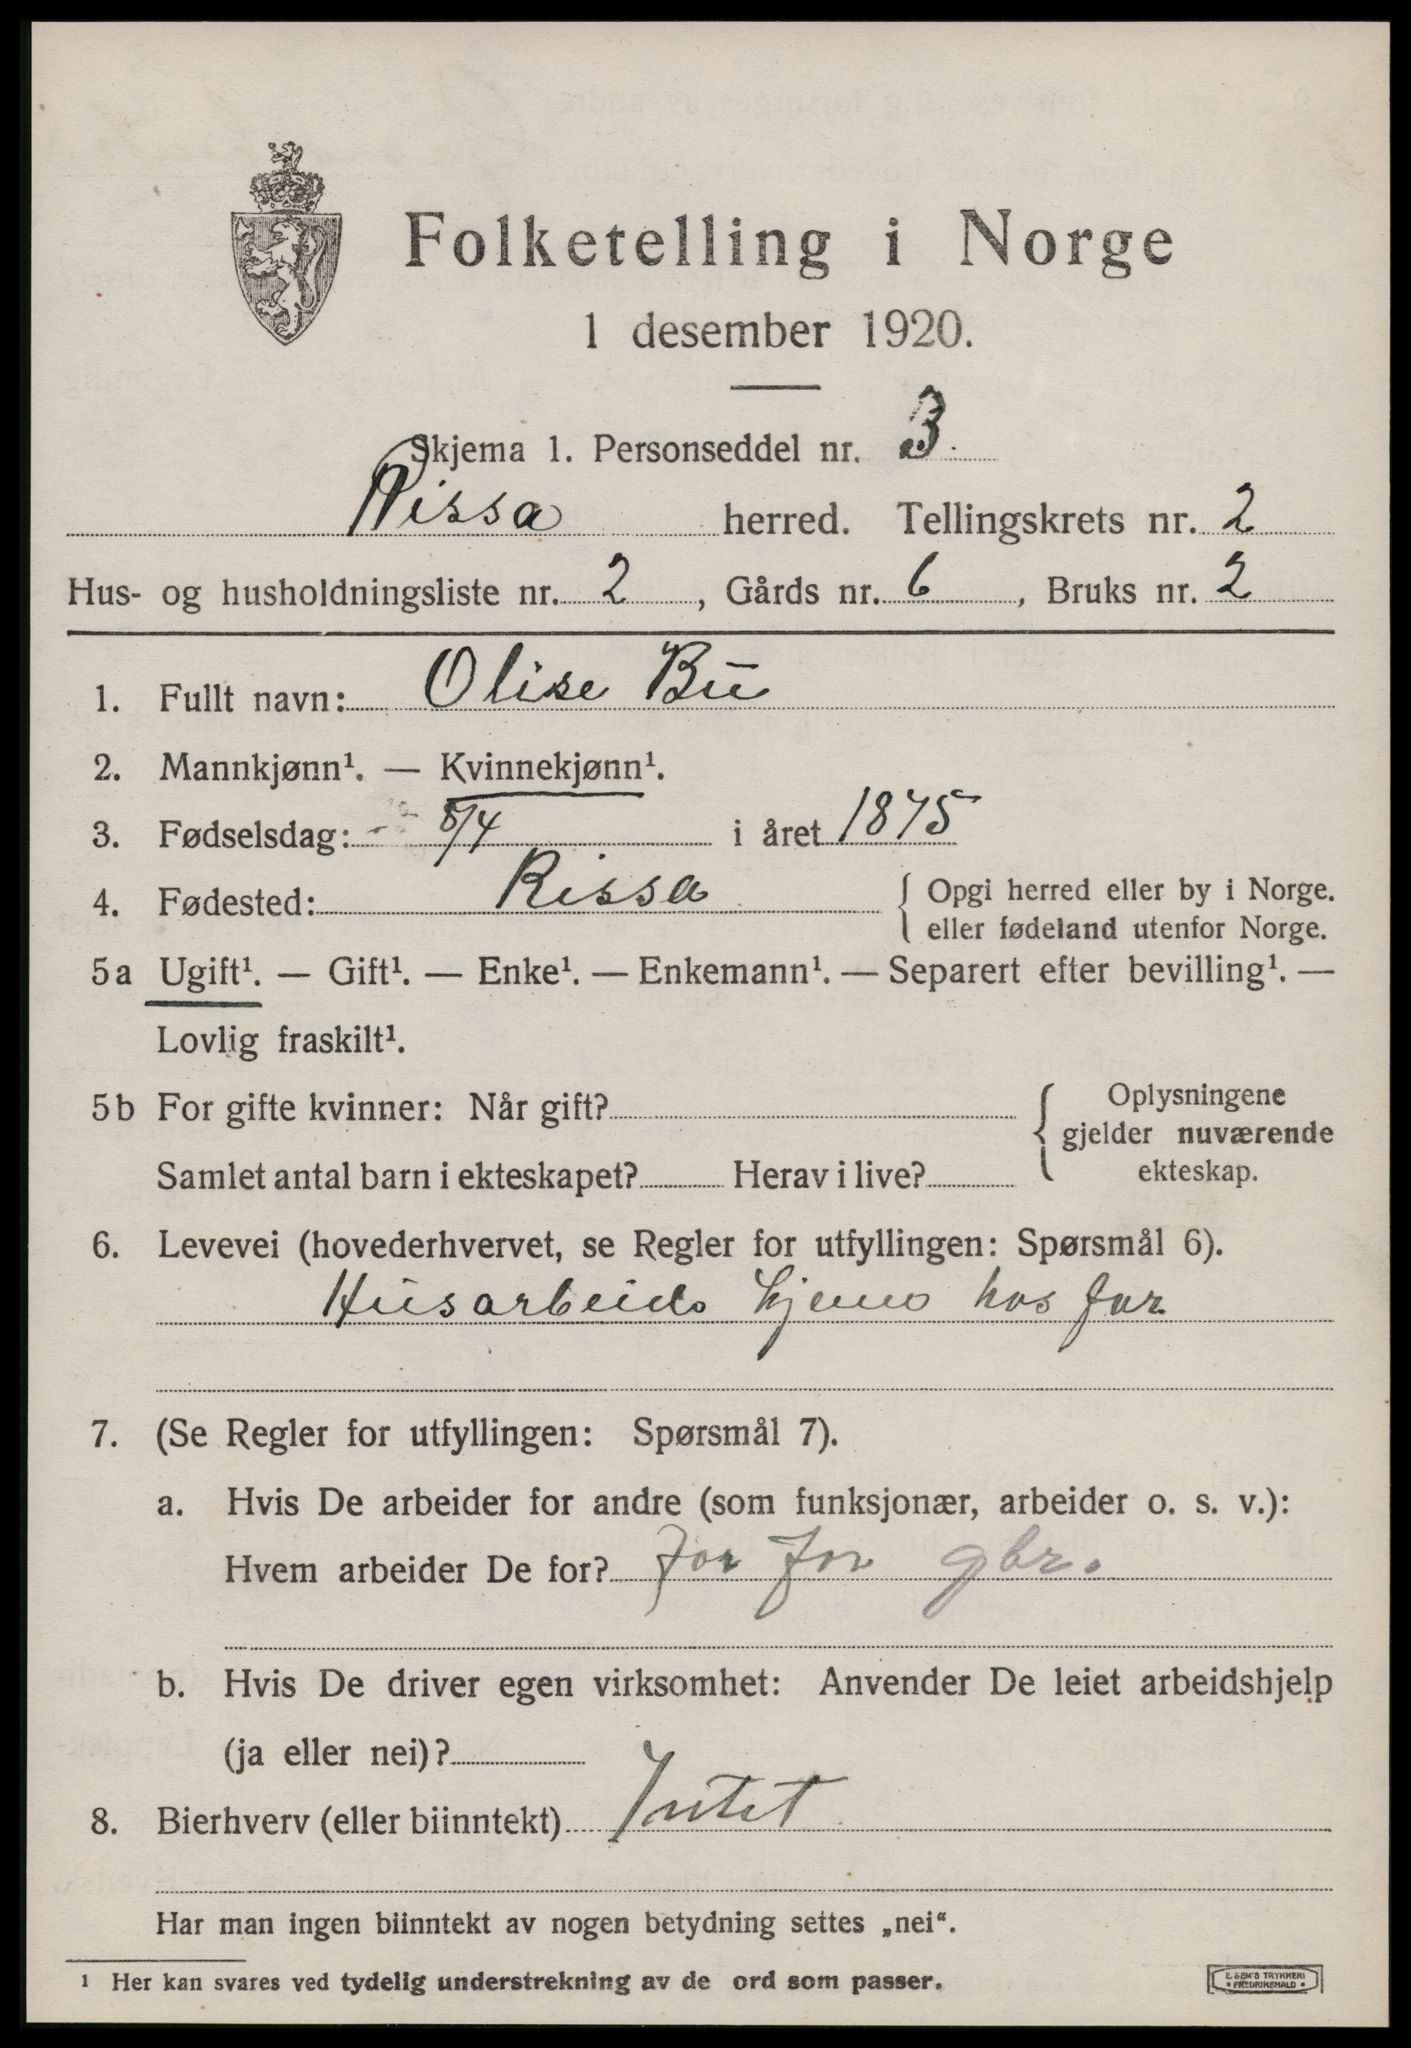 Folketelling i Norge
1 desember 1920.
Skjema 1. Personseddel nr. 3
Rissa herred. Tellingskrets nr. 2
Hus- og husholdningsliste nr. 2, Gårds nr. 6, Bruks nr. 2
1. Fullt navn: Olise Bū
2. Mannkjønn¹. — Kvinnekjønn¹.
3. Fødselsdag: 8/4 i året 1875
4. Fødested: Rissa { Opgi herred eller by i Norge.
eller fødeland utenfor Norge.
5a Ugift¹. — Gift¹. — Enke¹. — Enkemann¹. — Separert efter bevilling¹. —
Lovlig fraskilt¹.
5b For gifte kvinner: Når gift? { Oplysningene
gjelder nuværende
Samlet antal barn i ekteskapet? Herav i live? ekteskap.
6. Levevei (hovederhvervet, se Regler for utfyllingen: Spørsmål 6).
Husarbeide hjeme hos far
7. (Se Regler for utfyllingen: Spørsmål 7).
a. Hvis De arbeider for andre (som funksjonær, arbeider o. s. v.):
Hvem arbeider De for? for far gbr.
b. Hvis De driver egen virksomhet: Anvender De leiet arbeidshjelp
(ja eller nei)?
8. Bierhverv (eller biinntekt) Intet
Har man ingen biinntekt av nogen betydning settes „nei“.
¹ Her kan svares ved tydelig understrekning av de ord som passer.
E. SEM'S TRYKKERI
• FREDRIKSHALD •